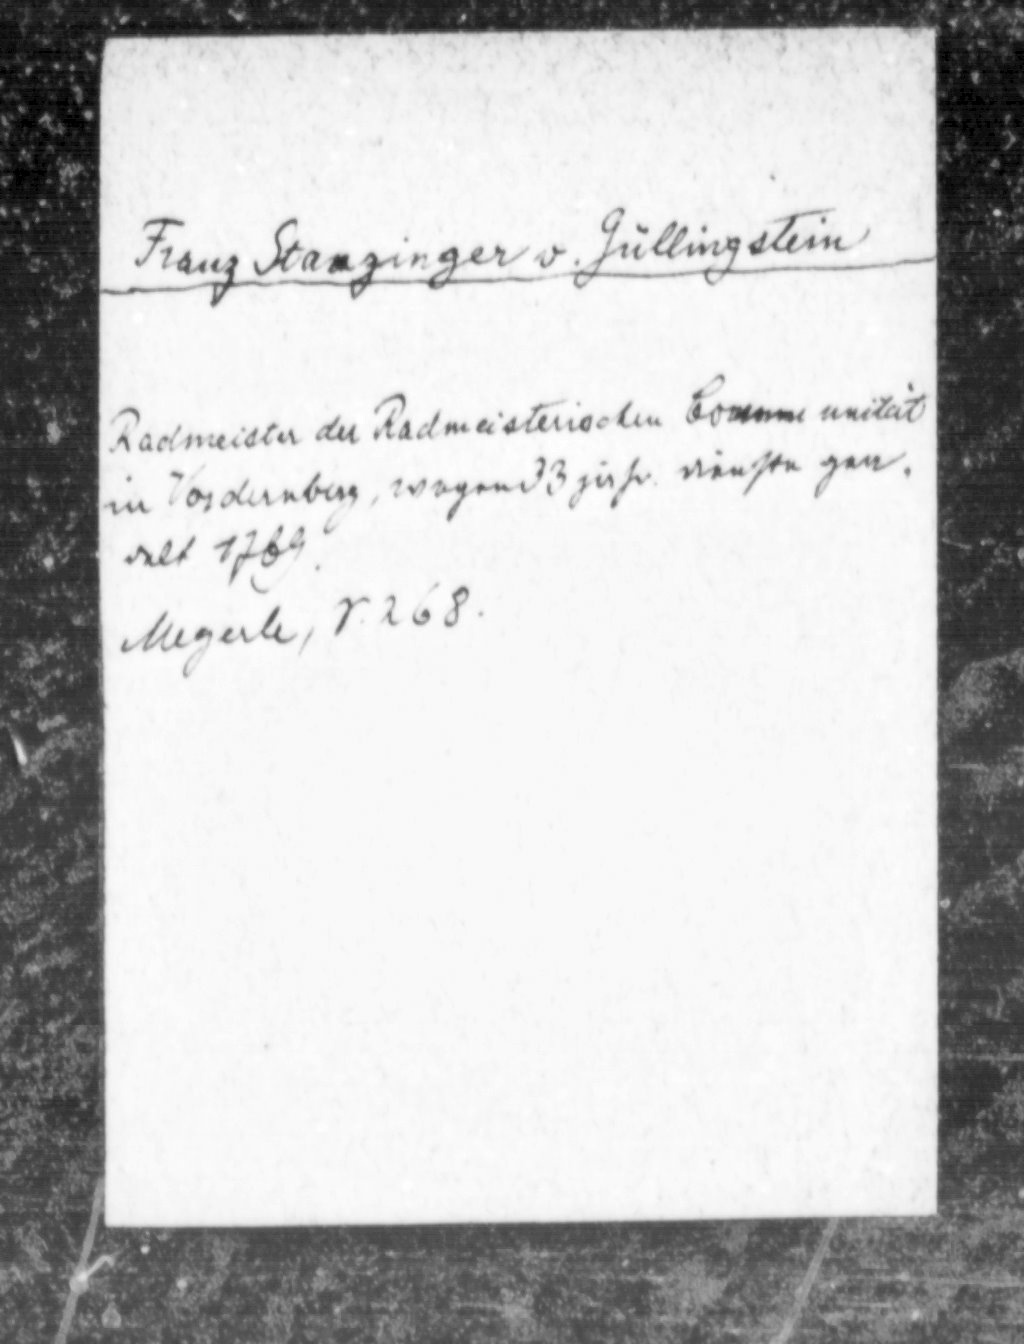 Franz Stanzinger v. Güllingstein
Radmeister der Radmeisterischen Communitāt
in Vordernberg, wegen 33 jähr. Dienste gean.
delt 1769.
Megerle, V. 268.